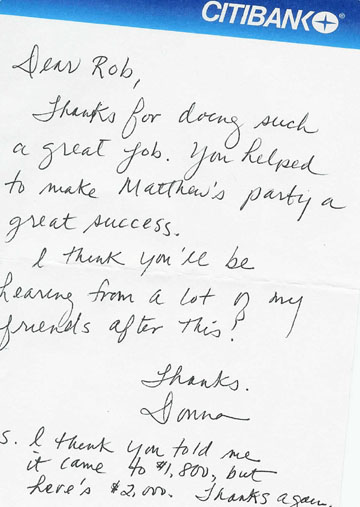 CITIBANK
Dear Rob,
Thanks for doing such
a great job. You helped
to make Matthew's party a
great success.
I think you'll be
hearing from a lot of my
friends after this!
Thanks.
Donna
S. I think you told me
it came to $1,800, but
here's $2,000. Thanks again.